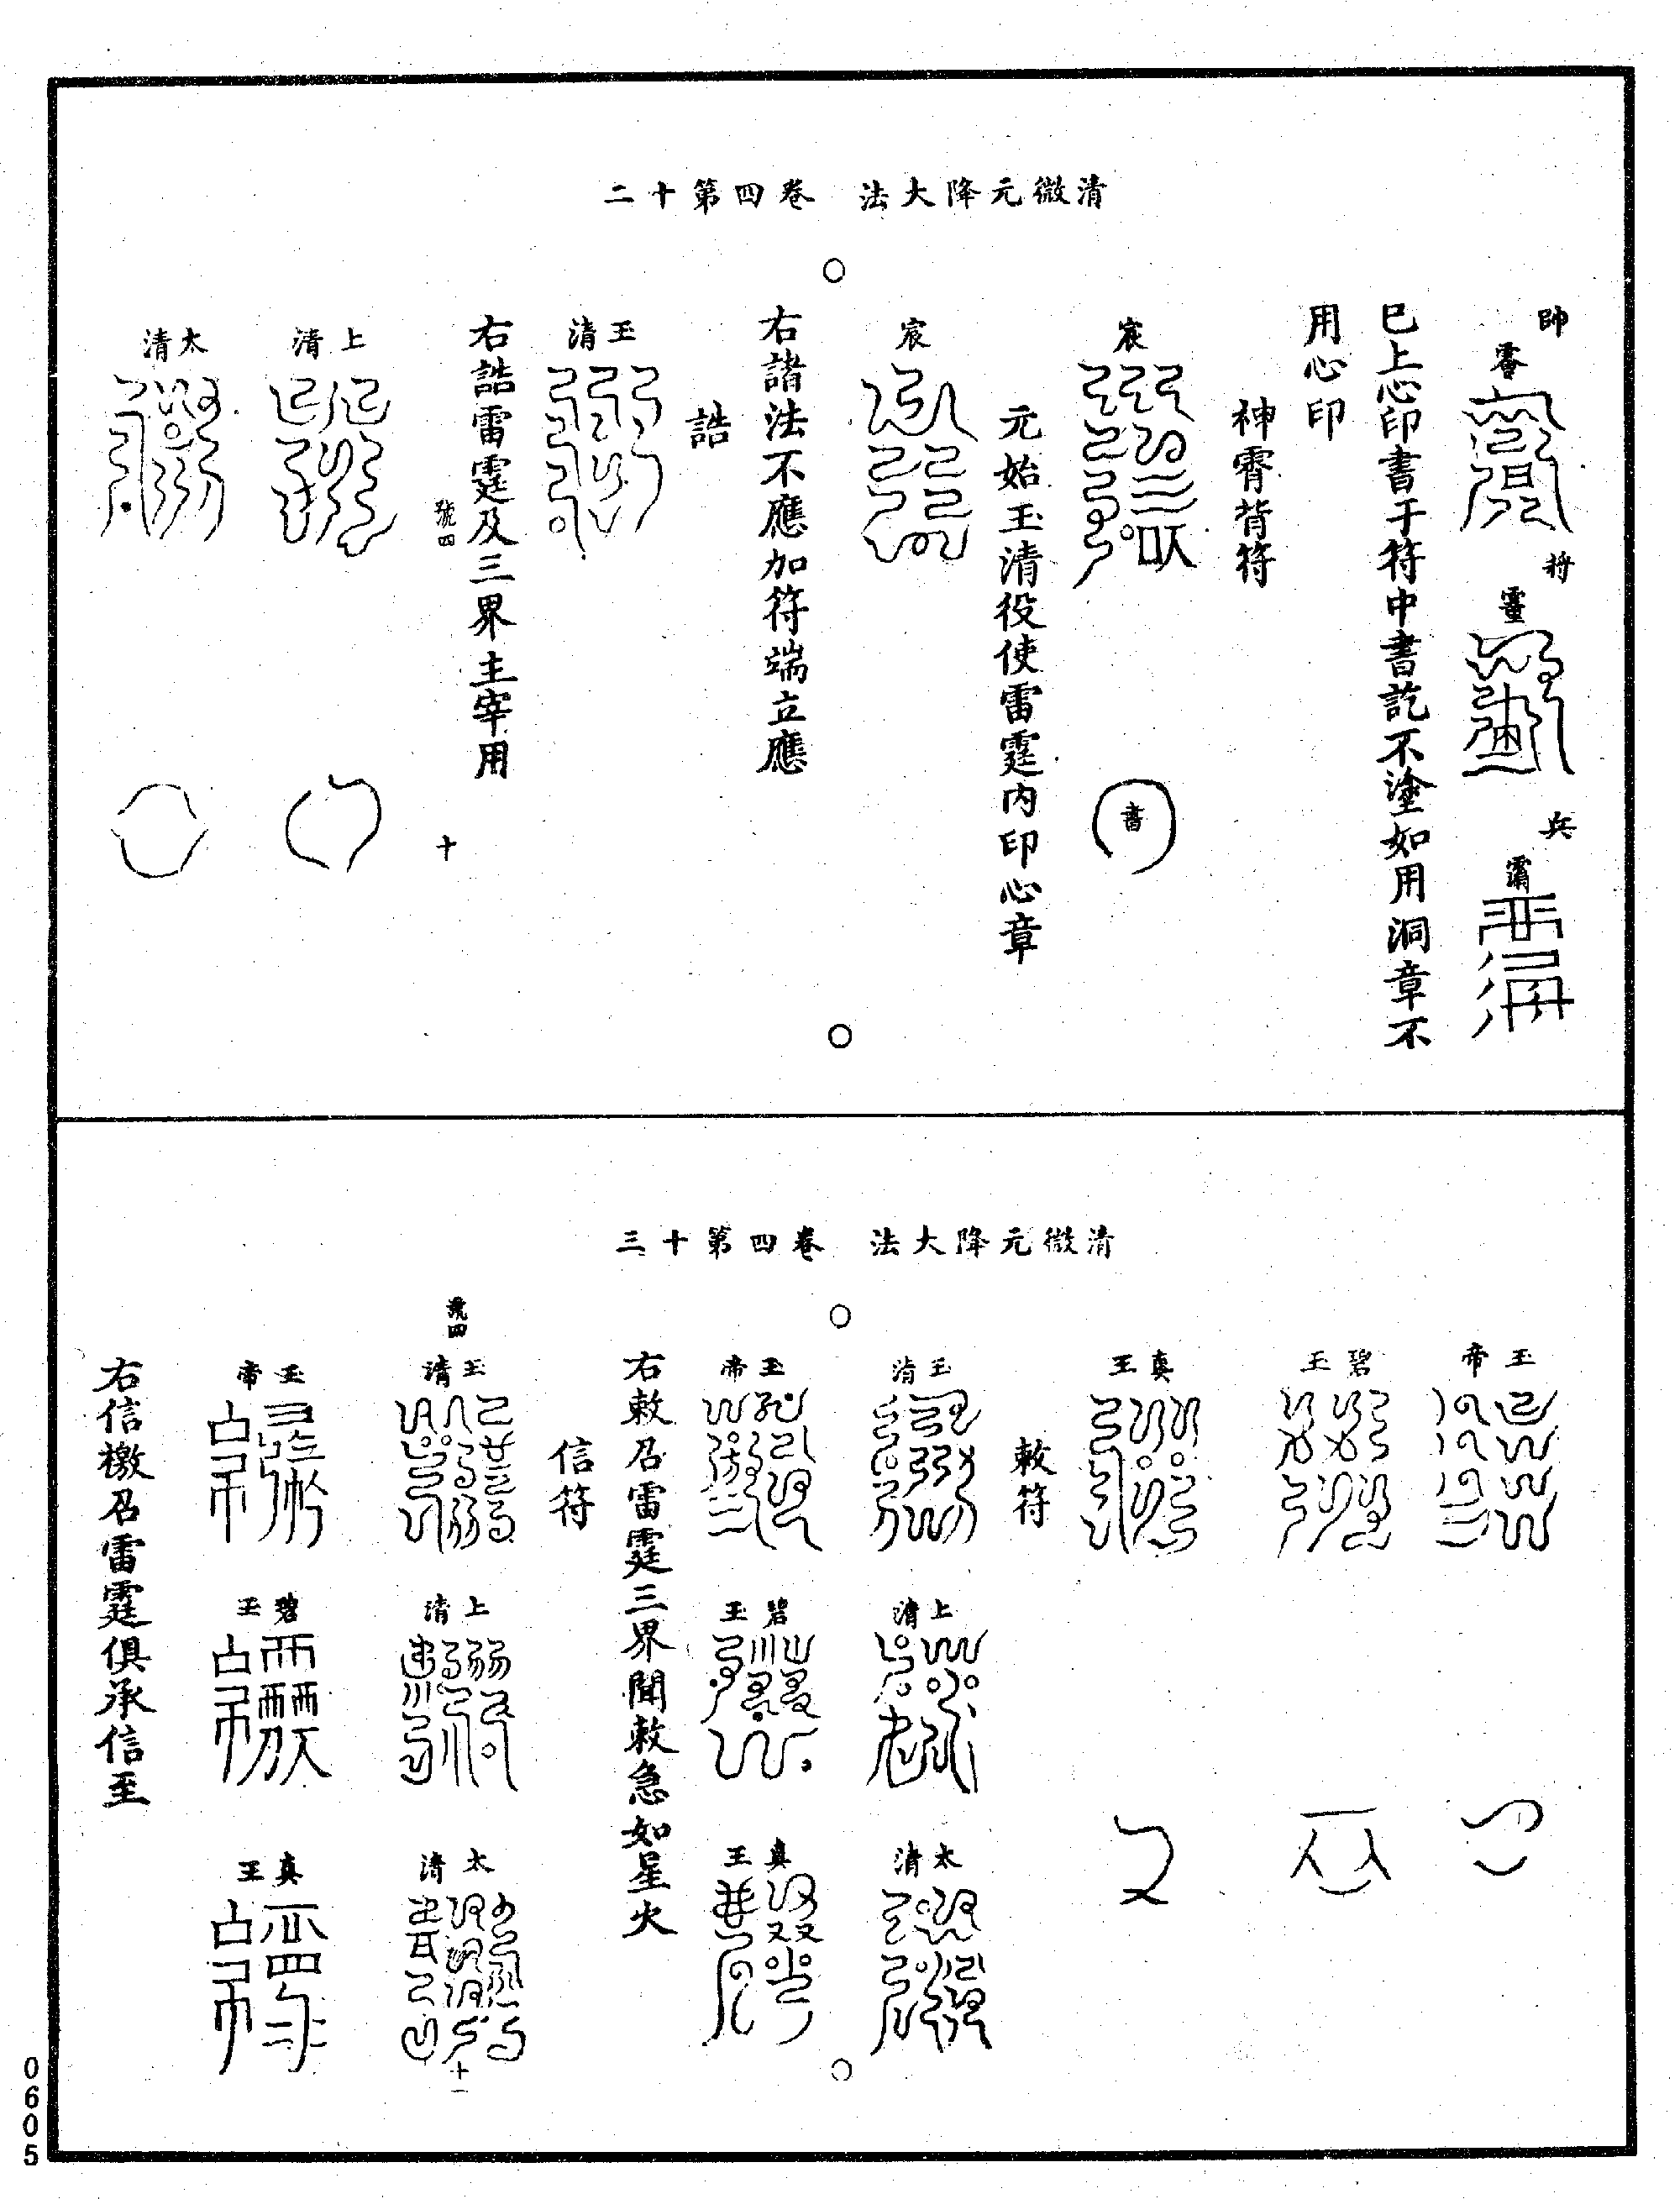 清微元降大法 卷四第十二
帥 將 兵
巳上心印書于符中書訖不塗如用洞章不
用心印
神霄背符
宸 書
元始玉清役使雷霆內印心章
宸
右諸法不應加符端立應
誥
玉清
右誥雷霆及三界主宰用
號四 十
上清
太清
清微元降大法 卷四第十三
玉帝
碧玉
真王
敕符
玉清 上清 太清
玉帝 碧玉 真王
右敕召雷霆三界聞敕急如星火
信符
號四 十一
玉清 上清 太清
玉帝 碧玉 真王
右信檄召雷霆俱承信至
0605